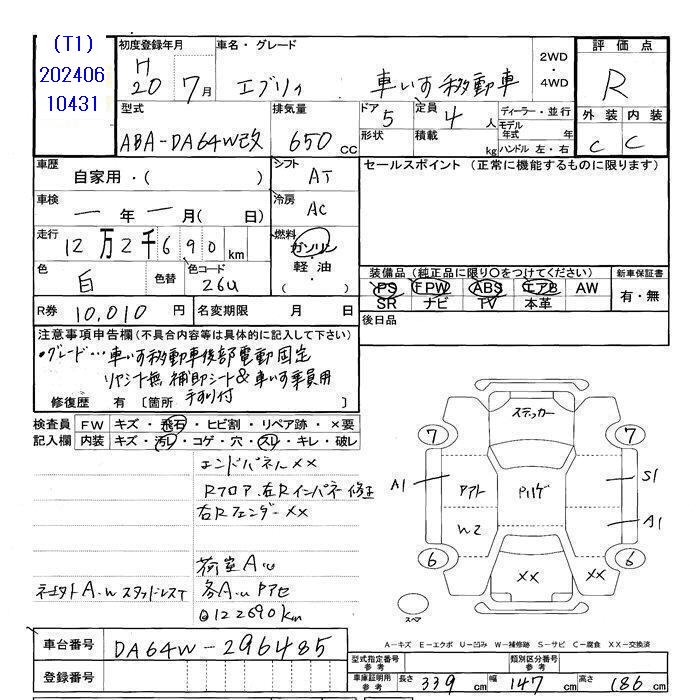 (T1)
202406
10431
初度登録年月
H
20 7月
車名・グレード
エブリィ 車いす移動車
2WD
・
4WD
評価点
R
型式
ABA-DA64W改
排気量
650 cc
ドア
5
定員
4 人
形状
積載
kg
ディーラー・並行
モデル
年式 年
ハンドル 左・右
外装 内装
C C
車歴
自家用・( )
シフト
AT
セールスポイント (正常に機能するものに限ります)
車検
一 年 一 月( 日)
冷房
AC
走行
12万2千690km
燃料
ガソリン
・
軽・油
( )
色
白
色替
色コード
26U
装備品(純正品に限り○をつけてください)
PS FPW ABS エアB AW
SR ナビ TV 本革
新車保証書
有・無
R券 10,010円
名変期限 月 日
後日品
注意事項申告欄(不具合内容等は具体的に記入して下さい)
・グレード…車いす移動車後部電動固定
リヤシート無 補助シート&車いす乗員用
手すり付
修復歴 有 〔箇所 〕
検査員
記入欄
FW キズ・飛石・ヒビ割・リペア跡・×要
内装 キズ・汚レ・コゲ・穴・スレ・キレ・破レ
エンドパネルXX
Rフロア.右Rインパネ修正
右RフェンダーXX
荷室A.u
各A.u
スタッドレス
◎122690km
ステッカー
7 7
A1
S1
A1
W2
6 6
XX XX
スペア
A-キズ E-エクボ U-凹み W-補修跡 S-サビ C-腐食 XX-交換済
車台番号 DA64W-296485
登録番号
型式指定番号
参考
類別区分番号
参考
車庫証明用
参考
長さ 339 cm 幅 147 cm 高さ 186 cm